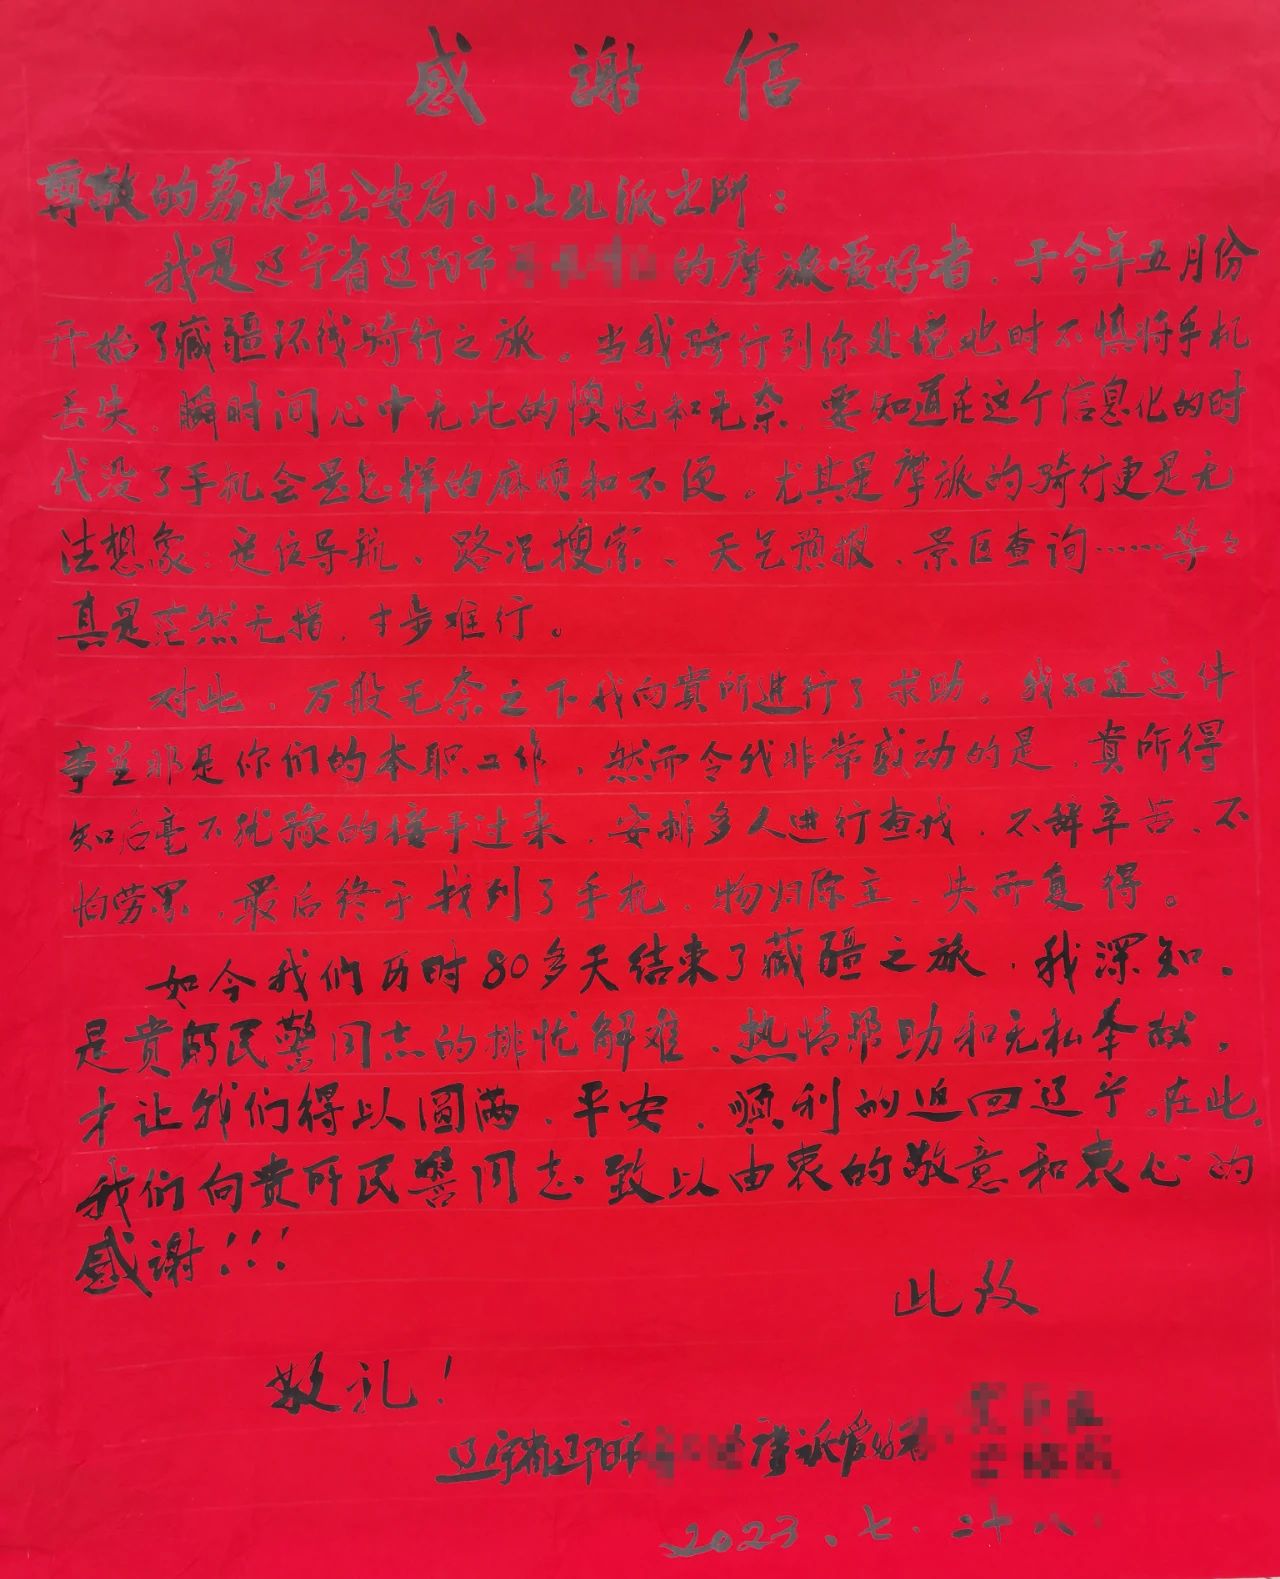 感谢信
尊敬的荔波县公安局小七孔派出所：
我是辽宁省辽阳市的摩旅爱好者，于今年五月份
开始了藏疆环线骑行之旅。当我骑行到你处境地时不慎将手机
丢失，瞬时间心中无比的懊恼和无奈，要知道在这个信息化的时
代没了手机会是怎样的麻烦和不便。尤其是摩旅的骑行更是无
法想象：定位导航、路况搜索、天气预报、景区查询……等々
真是茫然无措，寸步难行。
对此，万般无奈之下我向贵所进行了求助。我知道这件
事並非是你们的本职工作，然而令我非常感动的是，贵所得
知后毫不犹豫的接手过来，安排多人进行查找，不辞辛苦、不
怕劳累，最后终于找到了手机，物归原主、失而复得。
如今我们历时80多天结束了藏疆之旅，我深知，
是贵所民警同志的排忧解难、热情帮助和无私奉献，
才让我们得以圆满、平安、顺利的返回辽宁。在此，
我们向贵所民警同志致以由衷的敬意和衷心的
感谢！！！
此致
敬礼！
辽宁省辽阳市摩旅爱好者
2023.七.二十八